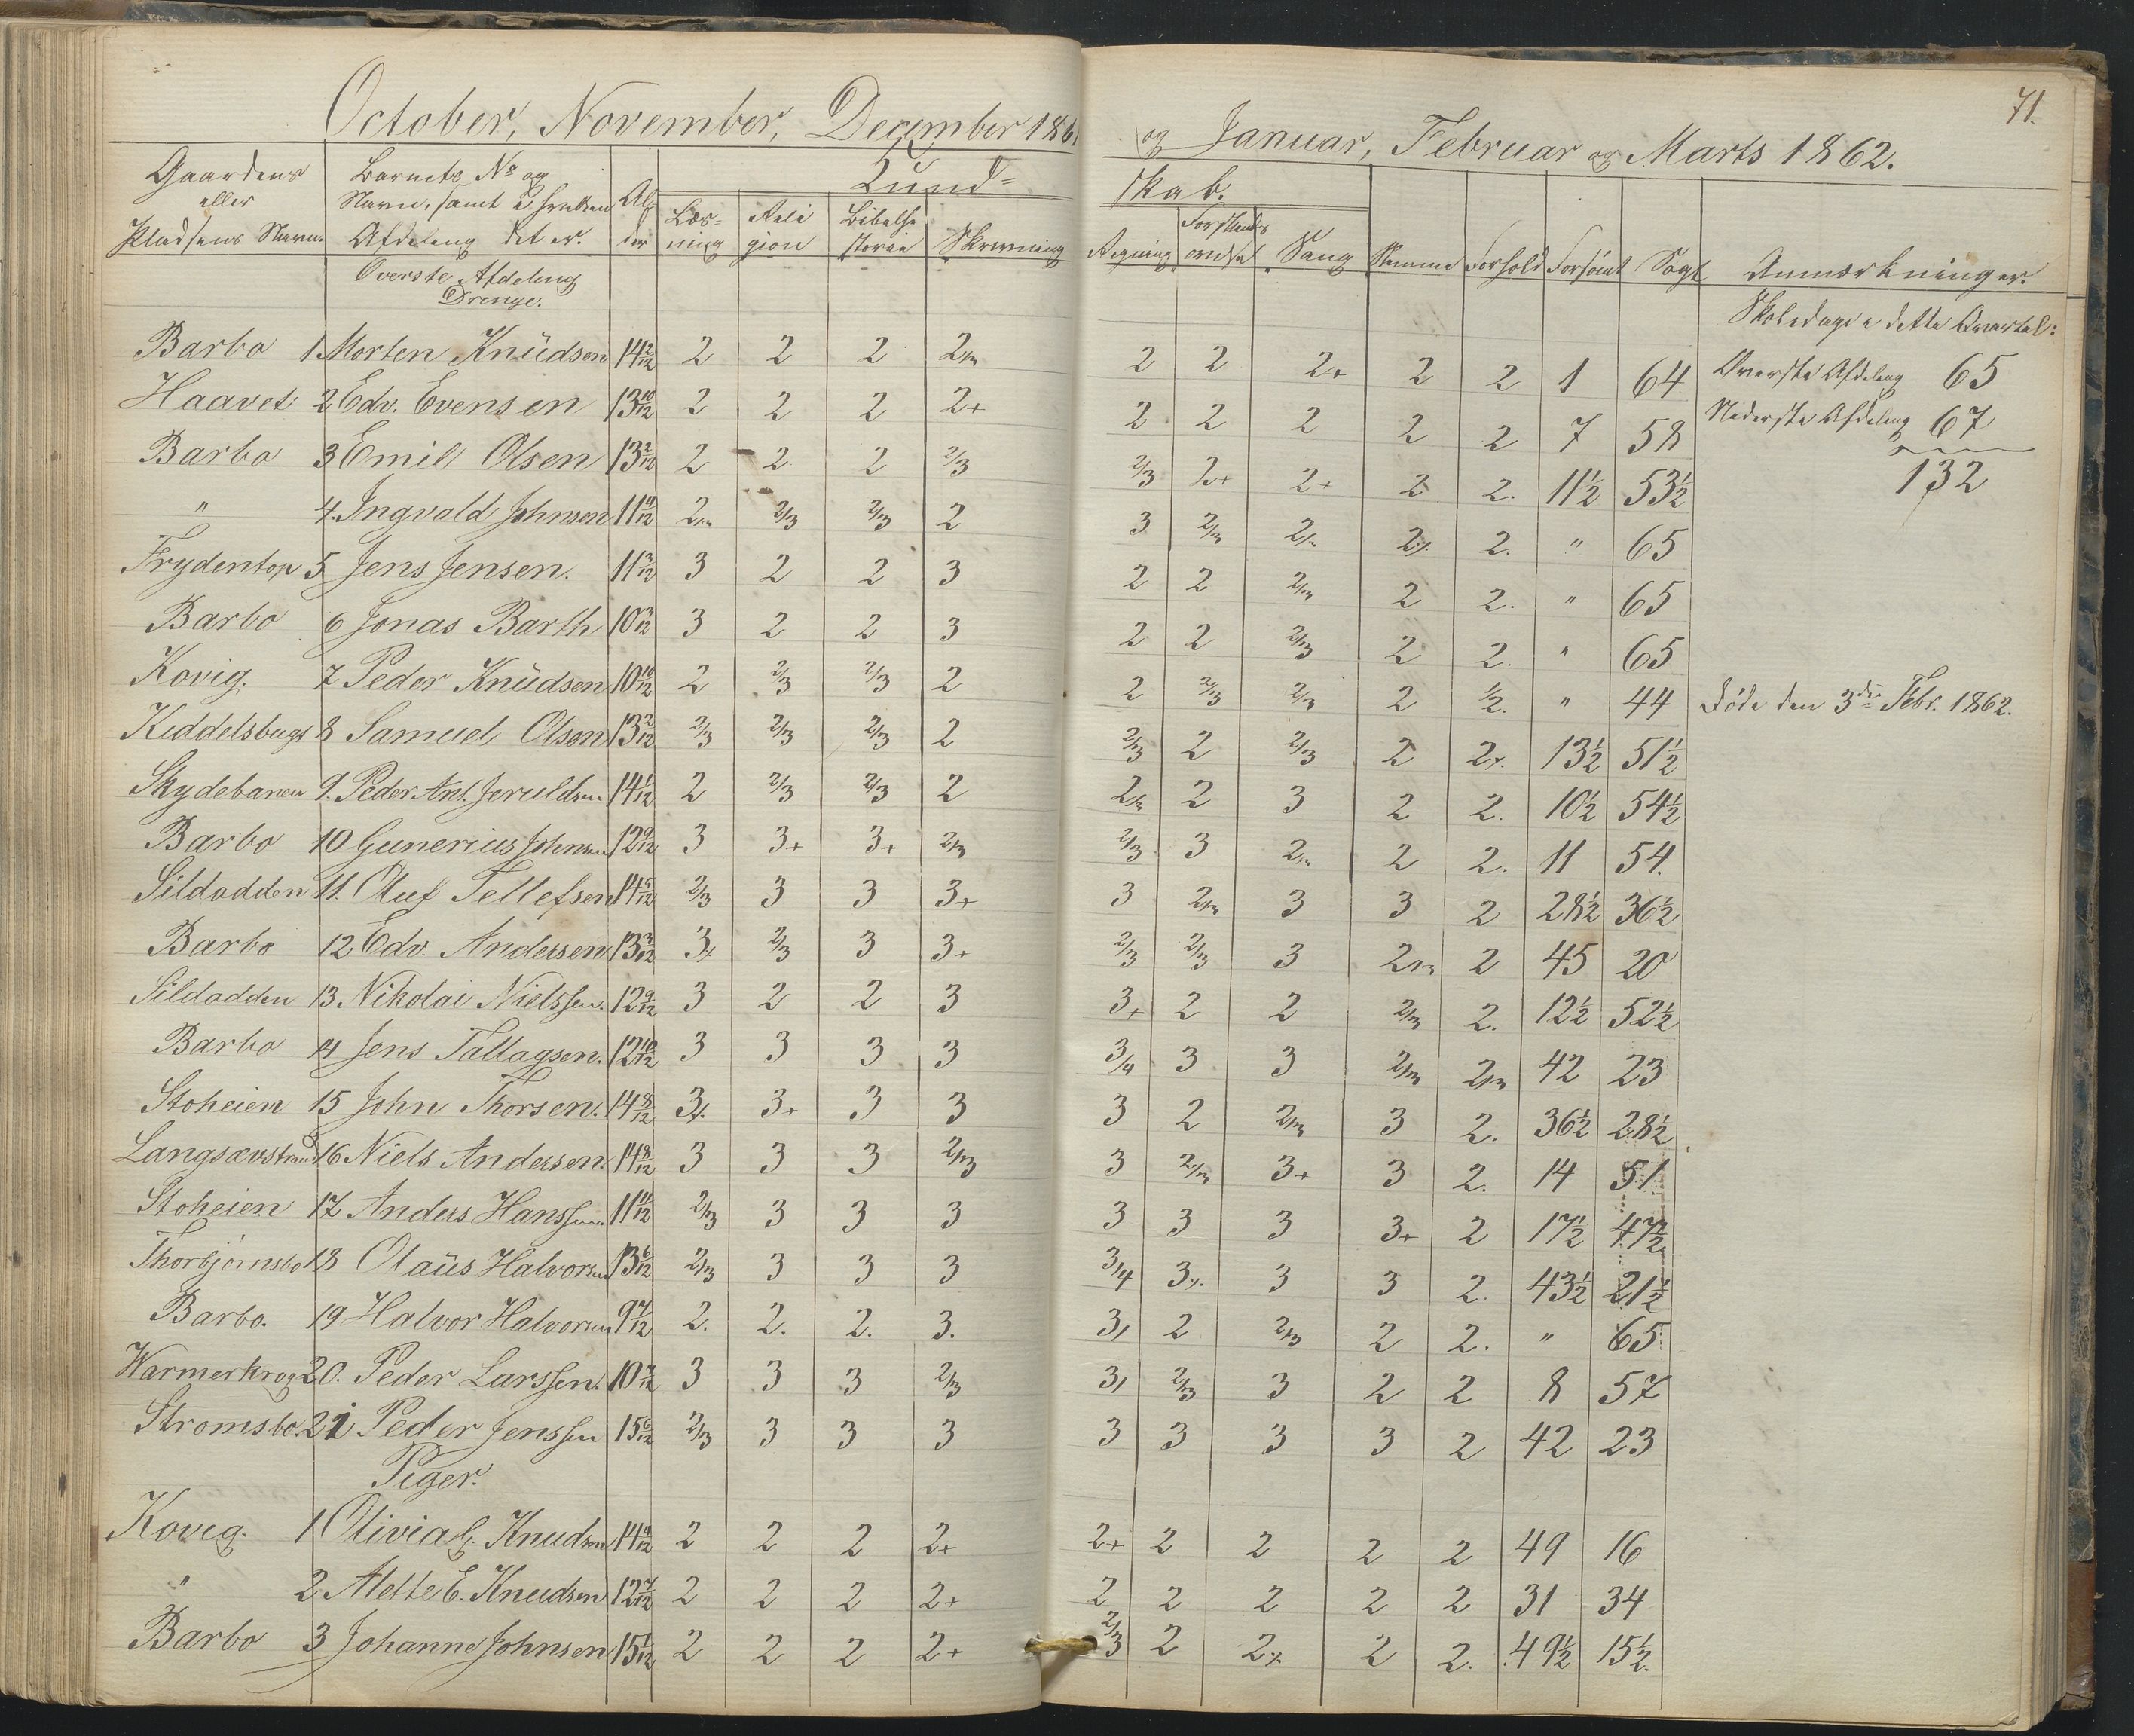 71.
October, November, December 1861 og Januar, Februar og Marts 1862.
Gaardens eller Pladsens Navn. Barnets No og Navn, samt i hvilken Afdeling det er. Alder Kundskab. Stemme Forhold Forsømt Søgt Anmærkninger.
Læsning Religion Bibelhistorie Skrivning Regning Forstands Sang
Øverste Afdeling
Drenge.
Skoledage i dette Qvartal:
Øverste Afdeling 65
Nederste Afdeling 67
132
Barbo 1 Morten Knüdsen 14 2/12 2 2 2 2/3 2 2 2+ 2 2 1 64
Haavet 2 Edv. Evensen 13 10/12 2 2 2 2+ 2 2 2 2 2 7 58
Barbo 3 Emil Olsen 13 2/12 2 2 2 2/3 2/3 2+ 2+ 2 2. 11½ 53½
" 4. Ingvald Johnsen 11 11/12 2/3 2/3 2/3 2 3 2/3 2/3 2 2. " 65
Frydentop 5 Jens Jensen. 11 3/12 3 2 2 3 2 2 2/3 2 2. " 65
Barbo 6 Jonas Barth 10 3/12 3 2 2 3 2 2 2/3 2 2. " 65
Kovig. 7 Peder Knüdsen 10 10/12 2 2/3 2/3 2 2 2/3 2/3 2 ½. " 44 Døde den 3die Febr. 1862.
8 Samuel Olsen 13 2/12 2/3 2/3 2/3 2 2/3 2 2/3 2 2 13½ 51½
Skydebanen 9. Peder Ant. Jeruldsen 14 1/12 2 2/3 2/3 2 2/3 2 3 2 2. 10½ 54½
Barbo 10 Gunerius Johnsen 12 9/12 3 3+ 3+ 2/3 2/3 3 2/3 2 2. 11 54.
Sildodden 11. Oluf Tellefsen 14 5/12 2/3 3 3 3+ 3 2/3 3 3 2 28½ 36½
Barbo 12 Edv. Andersen 13 3/12 3 2/3 3 3+ 2/3 2/3 3 2/3 2 45 20
Sildodden 13 Nikolai Nielssen. 12 9/12 3 2 2 3 3+ 2 2 2/3 2. 12½ 52½
Barbo 14 Jens Tallagsen. 12 10/12 3 3 3 3 3/4 3 3 2/3 2/3 42 23
Stoheien 15 John Thorsen. 14 8/12 3 3+ 3 3 3 2 2/3 3 2. 36½ 28½
Langsævstrand 16 Niels Andersen. 14 8/12 3 3 3 2/3 3 2/3 3+ 3 2. 14 51
Stoheien 17 Anders Hanssen. 11 11/12 2/3 3 3 3 3 3 3 3+ 2 17½ 47½
Thorbjørnsbo 18 Olaüs Halvorsen 13 6/12 2/3 3 3 3 3/4 3 3 3 2. 43½ 21½
Barbo. 19 Halvor Halvorsen 9 7/12 2. 2. 2. 3. 3/ 2 2/3 2 2. " 65
Warmerkrog 20. Peder Larssen. 10 7/12 3 3 3 2/3 3/ 2/3 3 2 2 8 57
Stromsbo. 21 Peder Jenssen 15 6/12 2/3 3 3 3 3 3 3 3 2 42 23
Piger.
Kovig. 1 Olivia C. Knudsen 14 9/12 2 2 2 2+ 2+ 2 2 2 2 49 16
" 2 Alette E. Knudsen 12 7/12 2 2 2 2+ 2 2 2 2 2 31 34
Barbo 3 Johanne Johnsen 15 1/12 2 2 2 2+ 2/3 2 2 2 2. 49½ 15½.